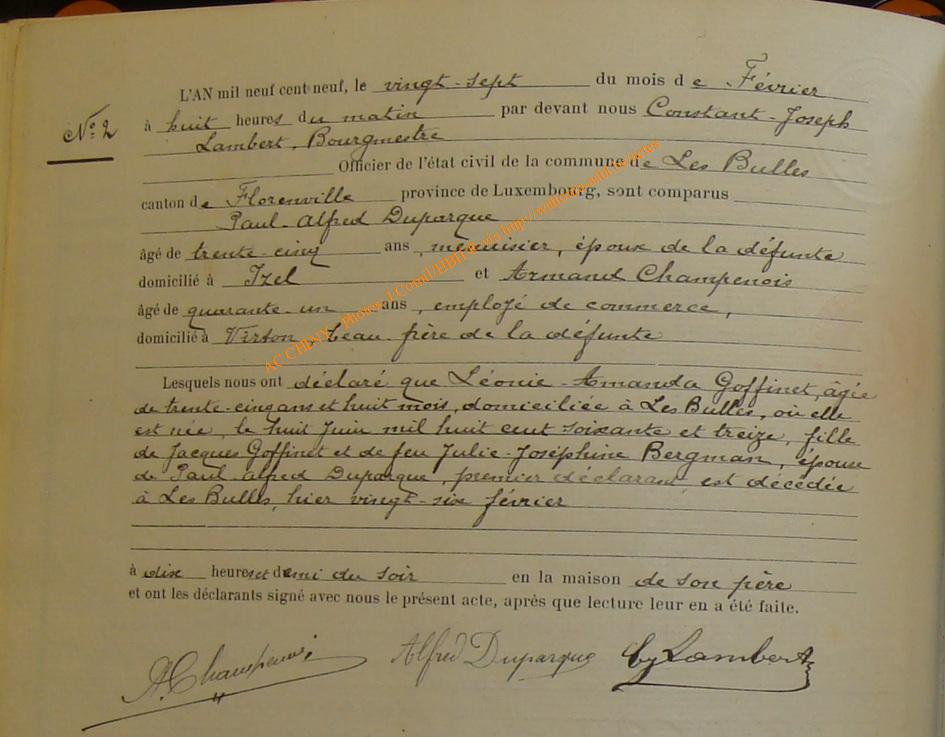 L'AN mil neuf cent neuf, le vingt-sept du mois de Février
N° 2
à huit heures du matin par devant nous Constant-Joseph
Lambert, Bourgmestre
Officier de l'état civil de la commune de Les Bulles
canton de Florenville province de Luxembourg, sont comparus
Paul-Alfred Duparque
âgé de trente-cinq ans, menuisier, époux de la défunte
domicilié à Izel et Armand Champenois
âgé de quarante-un ans, employé de commerce,
domicilié à Virton, beau-frère de la défunte
Lesquels nous ont déclaré que Léonie-Amanda Goffinet, âgée
de trente-cinq ans et huit mois, domiciliée à Les Bulles, où elle
est née, le huit Juin mil huit cent soixante et treize, fille
de Jacques Goffinet et de feu Julie-Joséphine Bergman, épouse
de Paul-alfred Duparque, premier déclarant est décédée
à Les Bulles, hier vingt-six février
à dix heures et demi du soir en la maison de son père
et ont les déclarants signé avec nous le présent acte, après que lecture leur en a été faite.
A. Champenois Alfred Duparque Lambert
AC CHINY - photos J.Comil/HBHH via http://wallonica
actes